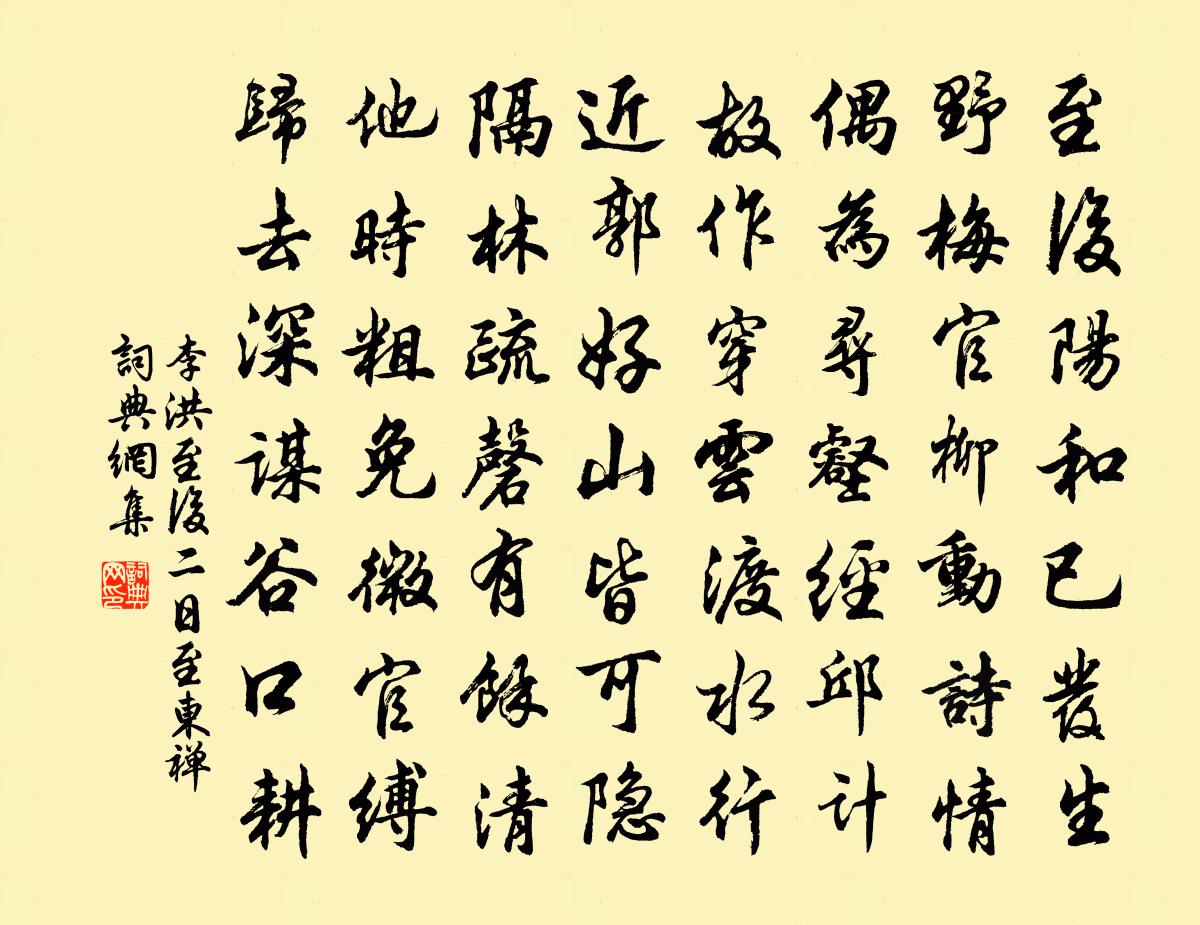 至後陽和已發生
野梅官柳動詩情
偶為尋壑經邱計
故作穿雲渡水行
近郭好山皆可隱
隔林疏磬有餘清
他時粗免微官縛
歸去深謀谷口耕
李洪至後二日至東禅
詞典網集
詞典网印